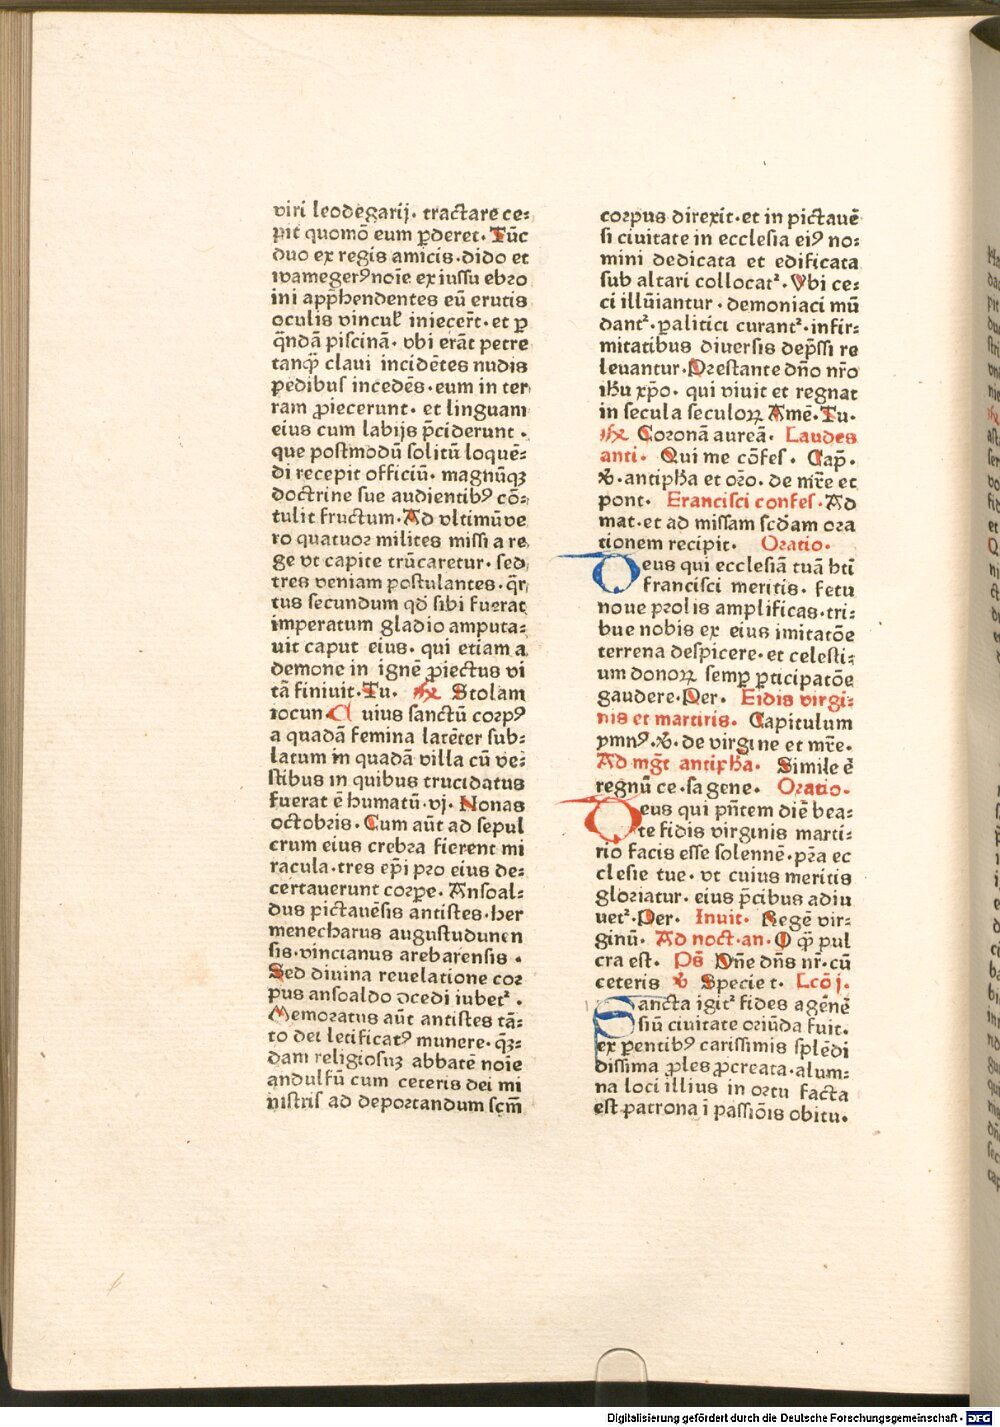 viri leodegarij· tractare ce⸗
pit quomõ eum ꝑderet· Tũc
duo ex regis amicis·dido et
wamegerꝰ noĩe ex iussu ebro
ini apphendentes eũ erutis
oculis vincul̛ iniecer̃t·et ꝑ
q̃ndã piscinã· vbi erãt petre
tanq̃ȝ claui incidẽtes nudis
pedibus incedẽs·eum in ter
ram ꝓiecerunt· et linguam
eius cum labijs p̃ciderunt·
que postmodũ solitũ loquẽ⸗
di recepit officiũ· magnũqȝ
doctrine sue audientibꝰ cõ⸗
tulit fructum·Ad vltimũ ve
ro quatuor milites missi a re
ge vt capite trũcaretur· sed
tres veniam postulantes·q̃r
tus secundum qđ sibi fuerat
imperatum gladio amputa⸗
uit caput eius· qui etiam a
demone in ignẽ ꝓiectus vi
tã finiuit·Tu· ℟ Stolam
iocun· Cuius sanctũ corpꝰ
a quadã femina latẽter sub⸗
latum in quadã villa cũ ve⸗
stibus in quibus trucidatus
fuerat ẽ humatũ·vj· Nonas
octobris·Cum aũt ad sepul
crum eius crebra fierent mi
racula·tres ep̃i pro eius de⸗
certauerunt corpe·Ansoal⸗
dus pictauẽsis antistes·her
menecharus augustudunen
sis·vincianus arebarensis·
Sed diuina reuelatione cor
pus ansoaldo ↄcedi iubet᷑·
Memoratus aũt antistes tã⸗
to dei letificatꝰ munere·q̃ȝ⸗
dam religiosuȝ abbatẽ noĩe
andulfũ cum ceteris dei mi
nistris ad deportandum scm̃
corpus direxit·et in pictauẽ
si ciuitate in ecclesia eiꝰ no⸗
mini dedicata et edificata
sub altari collocat᷑·Vbi ce⸗
ci illũiantur·demoniaci mũ
dant᷑·palitici curant᷑·infir⸗
mitatibus diuersis dep̃ssi re
leuantur·Prestante dño nr̃o
ihũ xp̃o· qui viuit et regnat
in secula seculoꝝ Amẽ·Tu·
℟ Coronã aureã· Laudes
anti· Qui me cõfes· Cap̃·
℣·antiph̃a et oro·de mr̃e et
pont· Francisci confes·Ad
mat·et ad missam scđam ora
tionem recipit· Oratio·
Deus qui ecclesiã tuã bti
francisci meritis· fetu
noue prolis amplificas·tri⸗
bue nobis ex eius imitatõe
terrena despicere·et celesti⸗
um donoꝝ semꝑ ꝑticipatõe
gaudere·Per· Fidis virgi⸗
nis et martiris· Capitulum
ymnꝰ·℣·de virgine et mr̃e·
Ad mg̃t antiph̃a· Simile ẽ
regnũ ce·sagene· Oratio·
Deus qui pñtem diẽ bea⸗
te fidis virginis marti⸗
rio facis esse solennẽ·pr̃a ec
clesie tue·vt cuius meritis
gloriatur·eius p̃cibus adiu
uet᷑·Per· Inuit· Regẽ vir⸗
ginũ· Ad noct·an· O q̃ȝ pul
cra est· Ps̃ Dñe dñs nr̃·cũ
ceteris ℣ Specie t· Lcõ j·
Sancta igit᷑ fides agẽnẽ
siũ ciuitate oriũda fuit·
ex ꝑentibꝰ carissimis splẽdi
dissima ꝓles ꝓcreata·alum⸗
na loci illius in ortu facta
est patrona ĩ passiõis obitu·
Digitalisierung gefördert durch die Deutsche Forschungsgemeinschaft - DFG